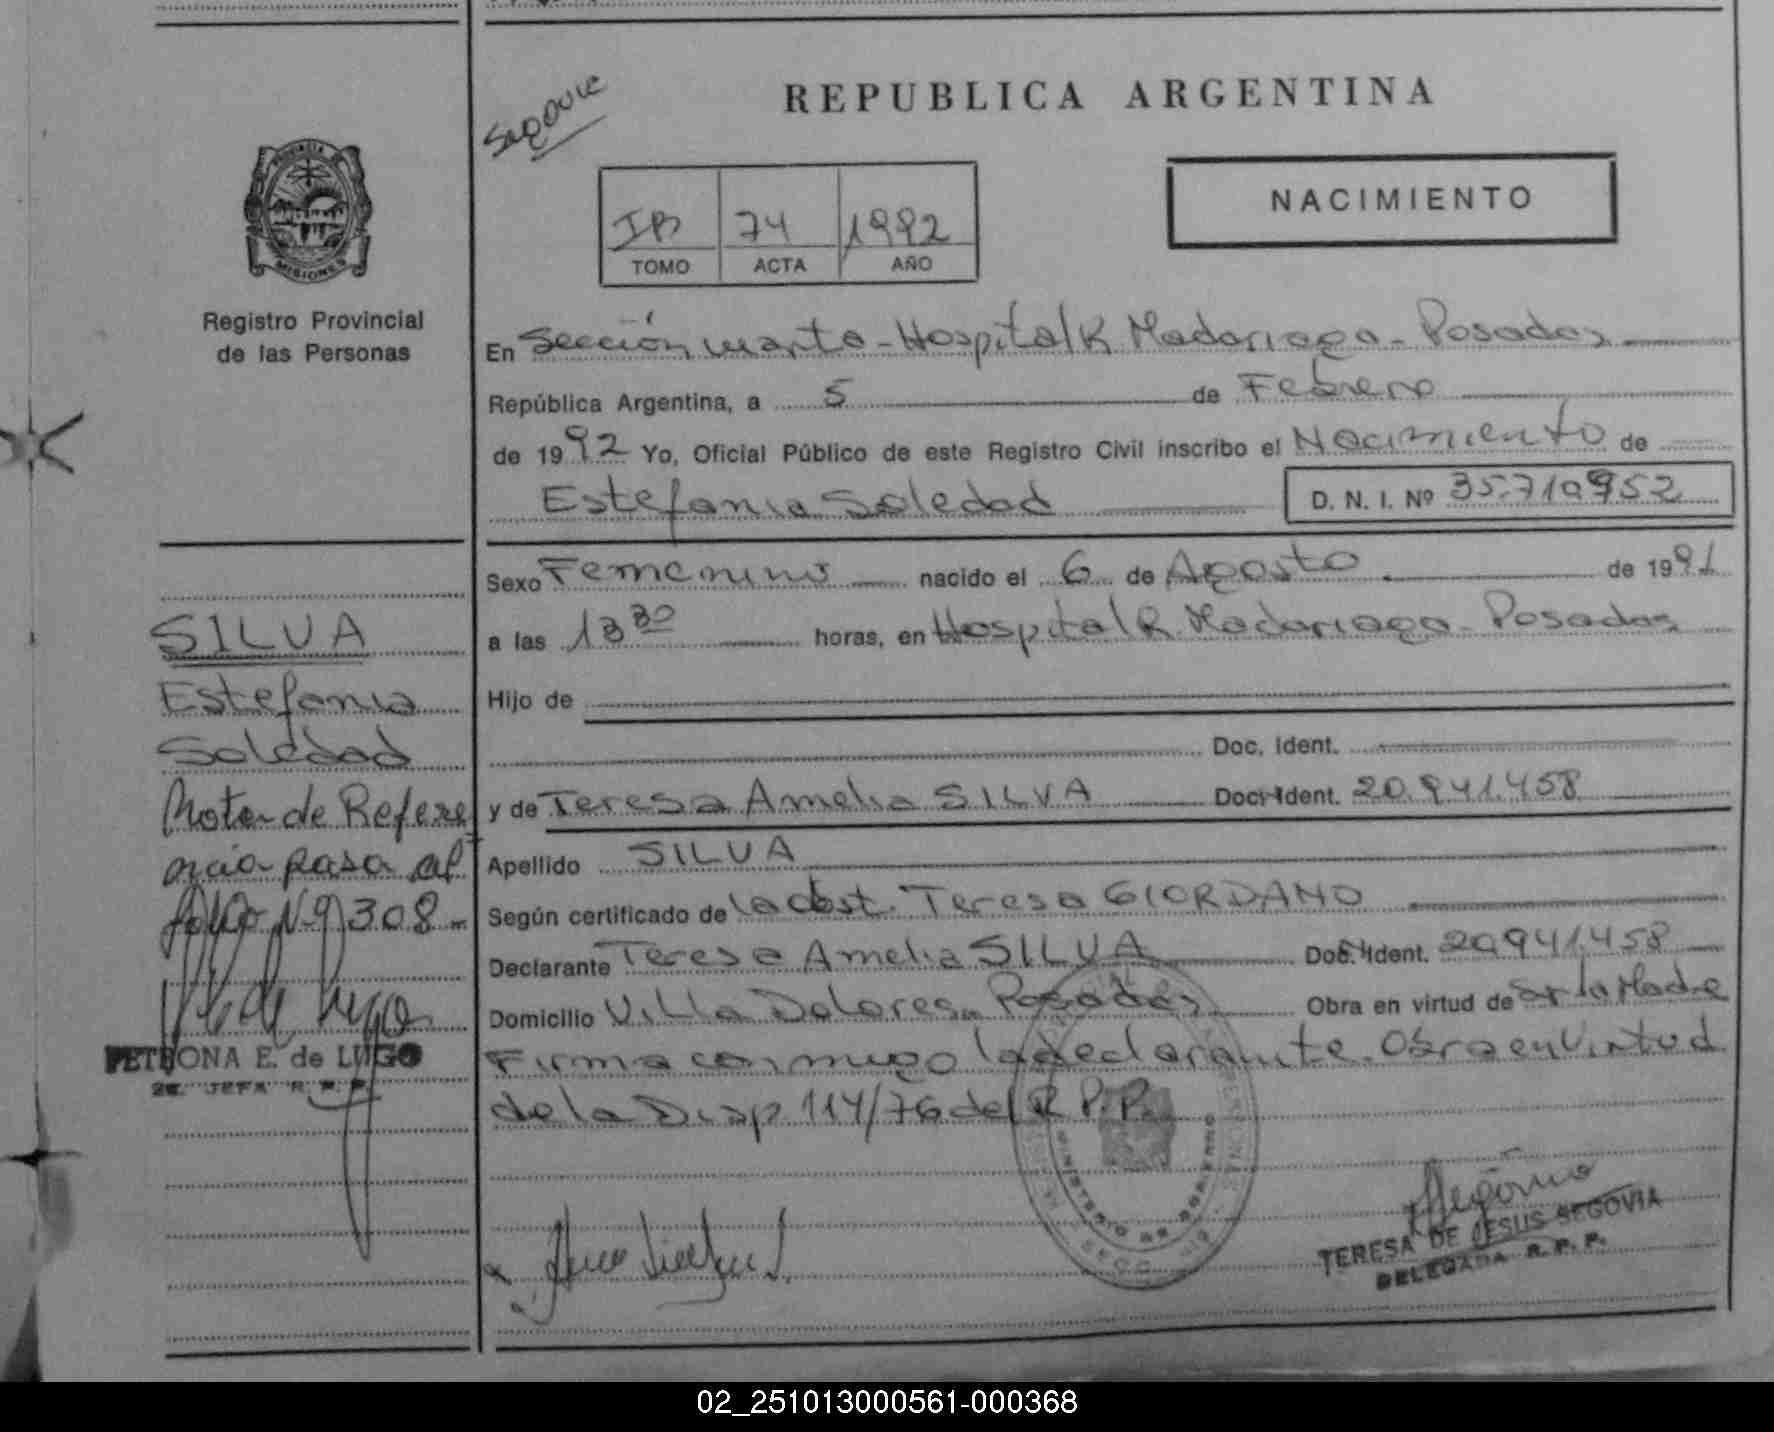 REPUBLICA ARGENTINA
NACIMIENTO
IB 74 1992
TOMO ACTA AÑO
PROVINCIA DE
MISIONES
Registro Provincial
de las Personas
En Sección cuarta - Hospital R Madariaga - Posadas
República Argentina, a 5 de Febrero
de 1992 Yo, Oficial Público de este Registro Civil inscribo el Nacimiento de
Estefania Soledad D. N. I. Nº 35.710952
Sexo Femenino nacido el 6 de Agosto de 1991
a las 13 30 horas, en Hospital R. Madariaga - Posadas
Hijo de
Doc. Ident.
y de Teresa Amelia SILVA Doc. Ident. 20.941.458
Apellido SILVA
Según certificado de la obst. Teresa GIORDANO
Declarante Teresa Amelia SILVA Doc. Ident. 20.941.458
Domicilio Villa Dolores - Posadas Obra en virtud de ser la Madre
Firma conmigo la declarante. Obra en virtud
de la Disp 114/76 del R.P.P.
SILVA
Estefania
Soledad
Nota de Refere
ncia pasa al
folio Nº 308
PETRONA E. de LUGO
2ª JEFA R. P. P.
MINISTERIO DE GOBIERNO
TERESA DE JESUS SEGOVIA
DELEGADA R. P. P.
02_251013000561-000368